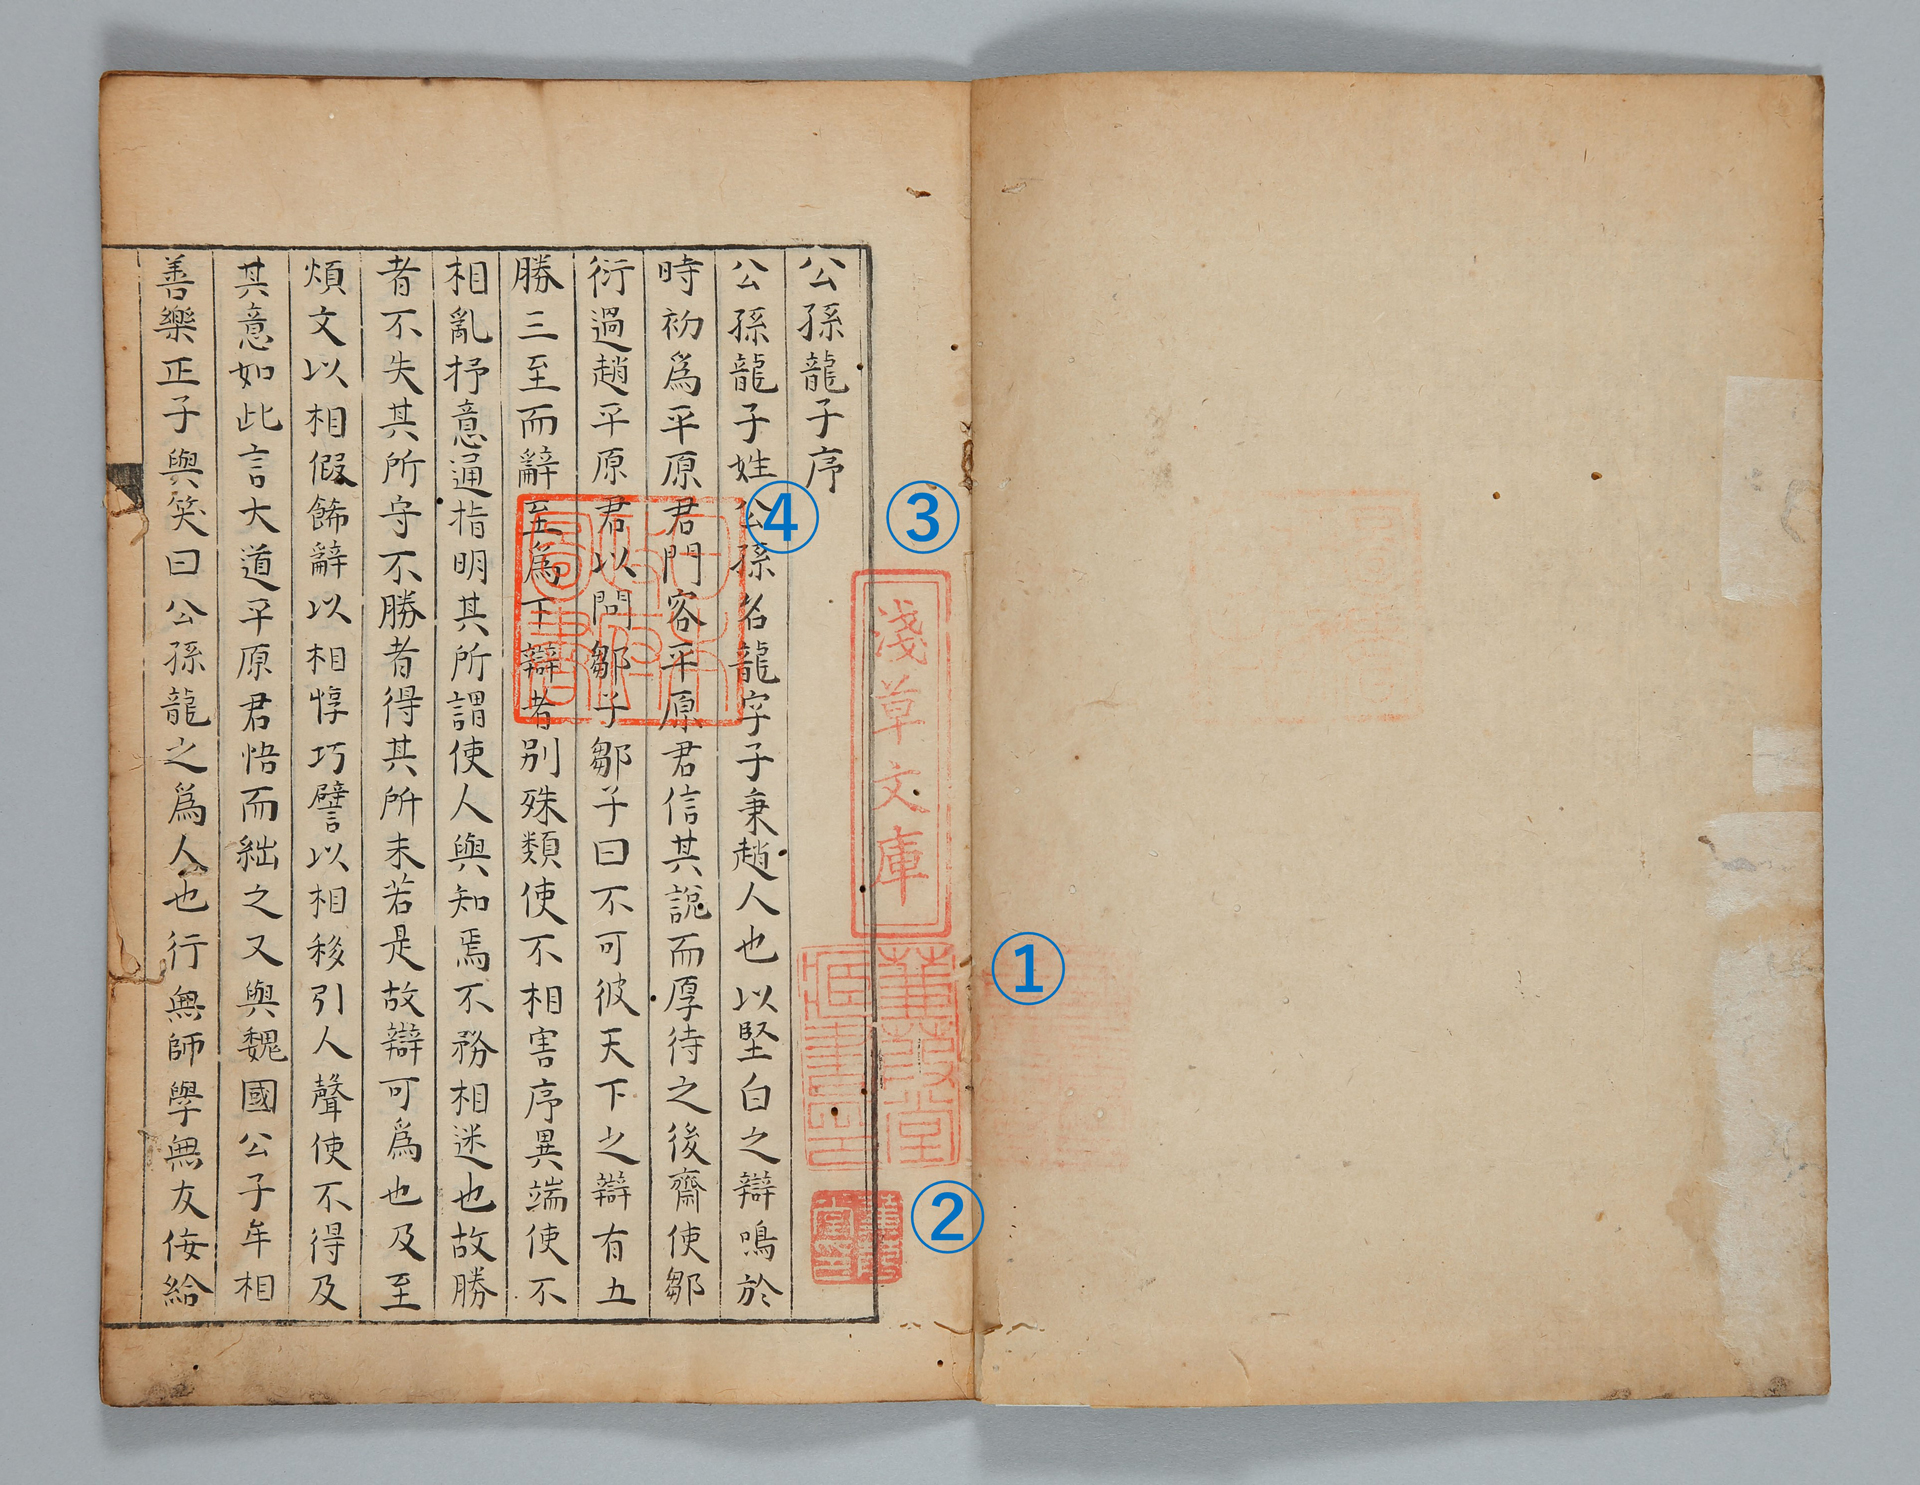 公孫龍子序
公孫龍子姓公孫名龍字子秉趙人也以堅白之辯鳴於
時初爲平原君門客平原君信其說而厚待之後齋使鄒
衍過趙平原君以問鄒子鄒子曰不可彼天下之辯有五
勝三至而辭至爲下辯者別殊類使不相害序異端使不
相亂抒意通指明其所謂使人與知焉不務相迷也故勝
者不失其所守不勝者得其所求若是故辯可爲也及至
煩文以相假飾辭以相惇巧譬以相移引人聲使不得及
其意如此言大道平原君悟而絀之又與魏國公子牟相
善樂正子與笑曰公孫龍之爲人也行無師學無友佞給
④
③
淺草文庫
①
蒹葭堂
藏書印
②
蒹葭
堂印